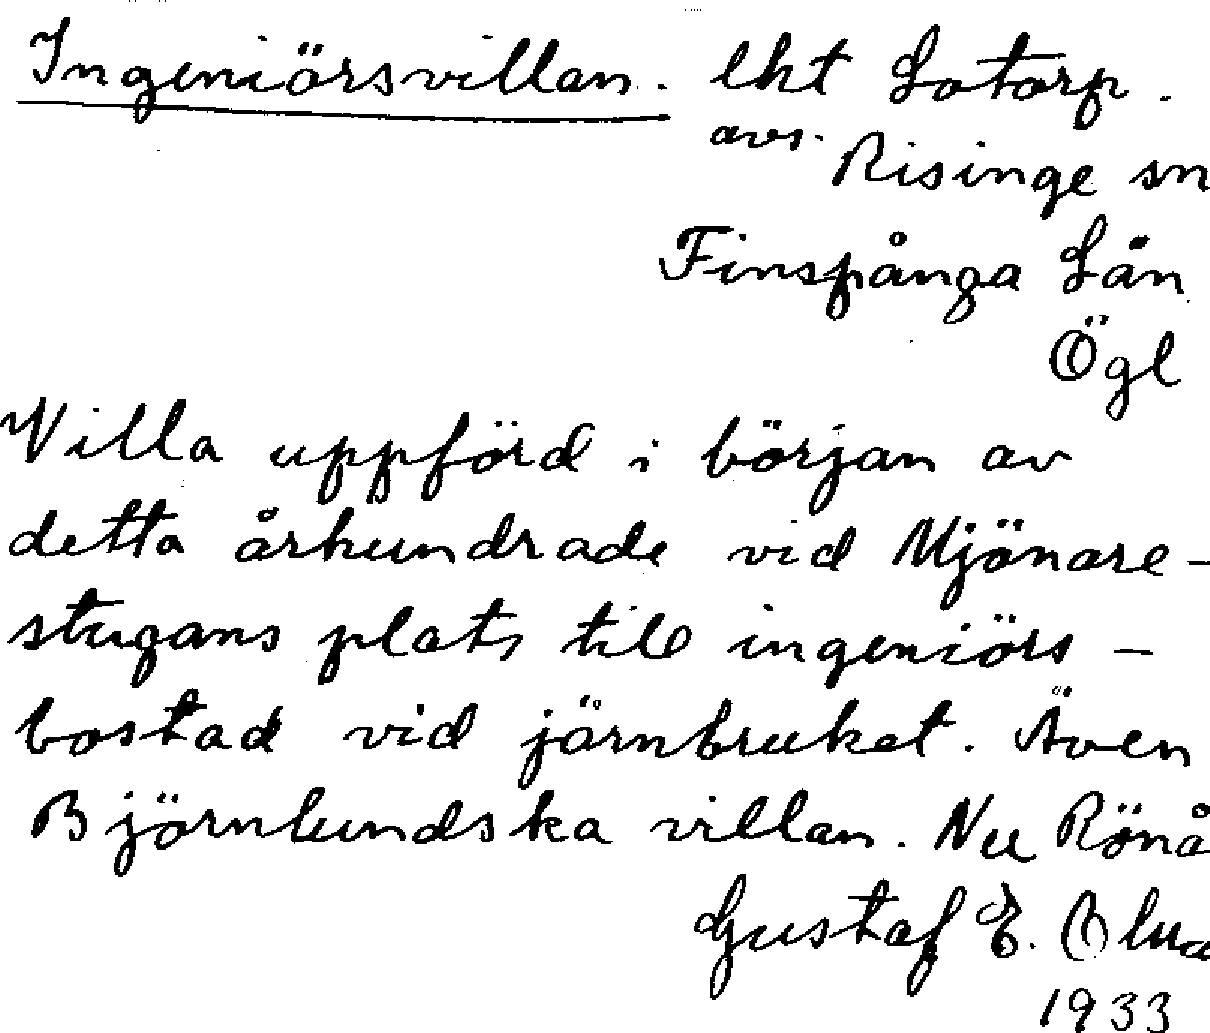 Ingeniörsvillan. lht Lotorp.
avs. Risinge sn
Finspånga Län
Ögl
Villa uppförd i början av
detta århundrade vid Mjönare-
stugans plats till ingeniörs-
bostad vid järnbruket. Även
Björnlundska villan. Nu Rönå
Gustaf E.
1933